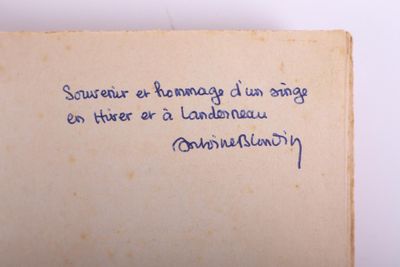 Souvenir et hommage d'un singe
en Hiver et à Landerneau
Antoine Blondin